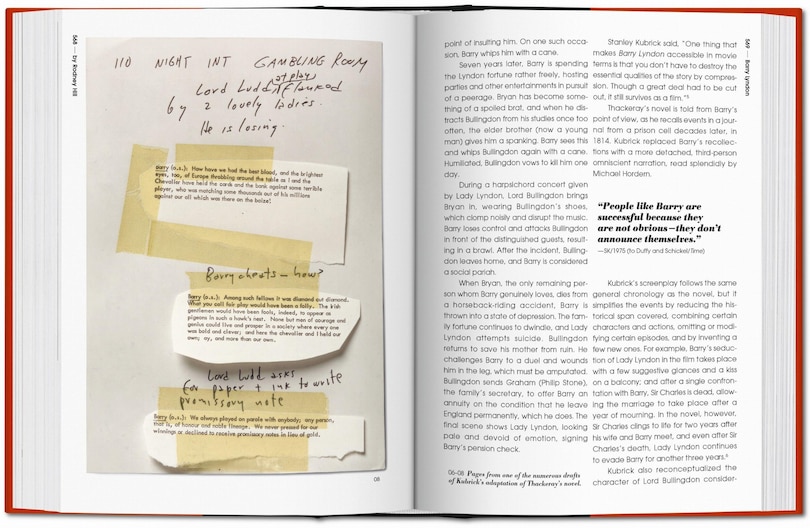 568 — by Rodney Hill
110 NIGHT INT GAMBLING ROOM
at play
Lord Ludd flanked
by 2 lovely ladies.
He is losing.
Barry (o.s.): How have we had the best blood, and the brightest
eyes, too, of Europe throbbing around the table as I and the
Chevalier have held the cards and the bank against some terrible
player, who was matching some thousands out of his millions
against our all which was there on the baize!
Barry cheats — how?
Barry (o.s.): Among such fellows it was diamond cut diamond.
What you call fair play would have been a folly. The kish
gentlemen would have been fools, indeed, to appear as
pigeons in such a hawk's nest. None but men of courage and
genius could live and prosper in a society where every one
was bold and clever; and here the chevalier and I held our
own; ay, and more than our own.
Lord Ludd asks
for paper + ink to write
promissory note
Barry (o.s.): We always played on parole with anybody; any person,
that is, of honour and noble lineage. We never pressed for our
winnings or declined to receive promissory notes in lieu of gold.
08
point of insulting him. On one such occa-
sion, Barry whips him with a cane.
Seven years later, Barry is spending
the Lyndon fortune rather freely, hosting
parties and other entertainments in pursuit
of a peerage. Bryan has become some-
thing of a spoiled brat, and when he dis-
tracts Bullingdon from his studies once too
often, the elder brother (now a young
man) gives him a spanking. Barry sees this
and whips Bullingdon again with a cane.
Humiliated, Bullingdon vows to kill him one
day.
During a harpsichord concert given
by Lady Lyndon, Lord Bullingdon brings
Bryan in, wearing Bullingdon's shoes,
which clomp noisily and disrupt the music.
Barry loses control and attacks Bullingdon
in front of the distinguished guests, result-
ing in a brawl. After the incident, Bulling-
don leaves home, and Barry is considered
a social pariah.
When Bryan, the only remaining per-
son whom Barry genuinely loves, dies from
a horseback-riding accident, Barry is
thrown into a state of depression. The fam-
ily fortune continues to dwindle, and Lady
Lyndon attempts suicide. Bullingdon
returns to save his mother from ruin. He
challenges Barry to a duel and wounds
him in the leg, which must be amputated.
Bullingdon sends Graham (Philip Stone),
the family's secretary, to offer Barry an
annuity on the condition that he leave
England permanently, which he does. The
final scene shows Lady Lyndon, looking
pale and devoid of emotion, signing
Barry's pension check.
06-08 Pages from one of the numerous drafts
of Kubrick's adaptation of Thackeray's novel.
Stanley Kubrick said, "One thing that
makes Barry Lyndon accessible in movie
terms is that you don't have to destroy the
essential qualities of the story by compres-
sion. Though a great deal had to be cut
out, it still survives as a film."⁵
Thackeray's novel is told from Barry's
point of view, as he recalls events in a jour-
nal from a prison cell decades later, in
1814. Kubrick replaced Barry's recollec-
tions with a more detached, third-person
omniscient narration, read splendidly by
Michael Hordern.
"People like Barry are
successful because they
are not obvious—they don't
announce themselves."
—SK/1975 (to Duffy and Schickel/Time)
Kubrick's screenplay follows the same
general chronology as the novel, but it
simplifies the events by reducing the his-
torical span covered, combining certain
characters and actions, omitting or modi-
fying certain episodes, and by inventing a
few new ones. For example, Barry's seduc-
tion of Lady Lyndon in the film takes place
with a few suggestive glances and a kiss
on a balcony; and after a single confron-
tation with Barry, Sir Charles is dead, allow-
ing the marriage to take place after a
year of mourning. In the novel, however,
Sir Charles clings to life for two years after
his wife and Barry meet, and even after Sir
Charles's death, Lady Lyndon continues
to evade Barry for another three years.⁶
Kubrick also reconceptualized the
character of Lord Bullingdon consider-
569 — Barry Lyndon